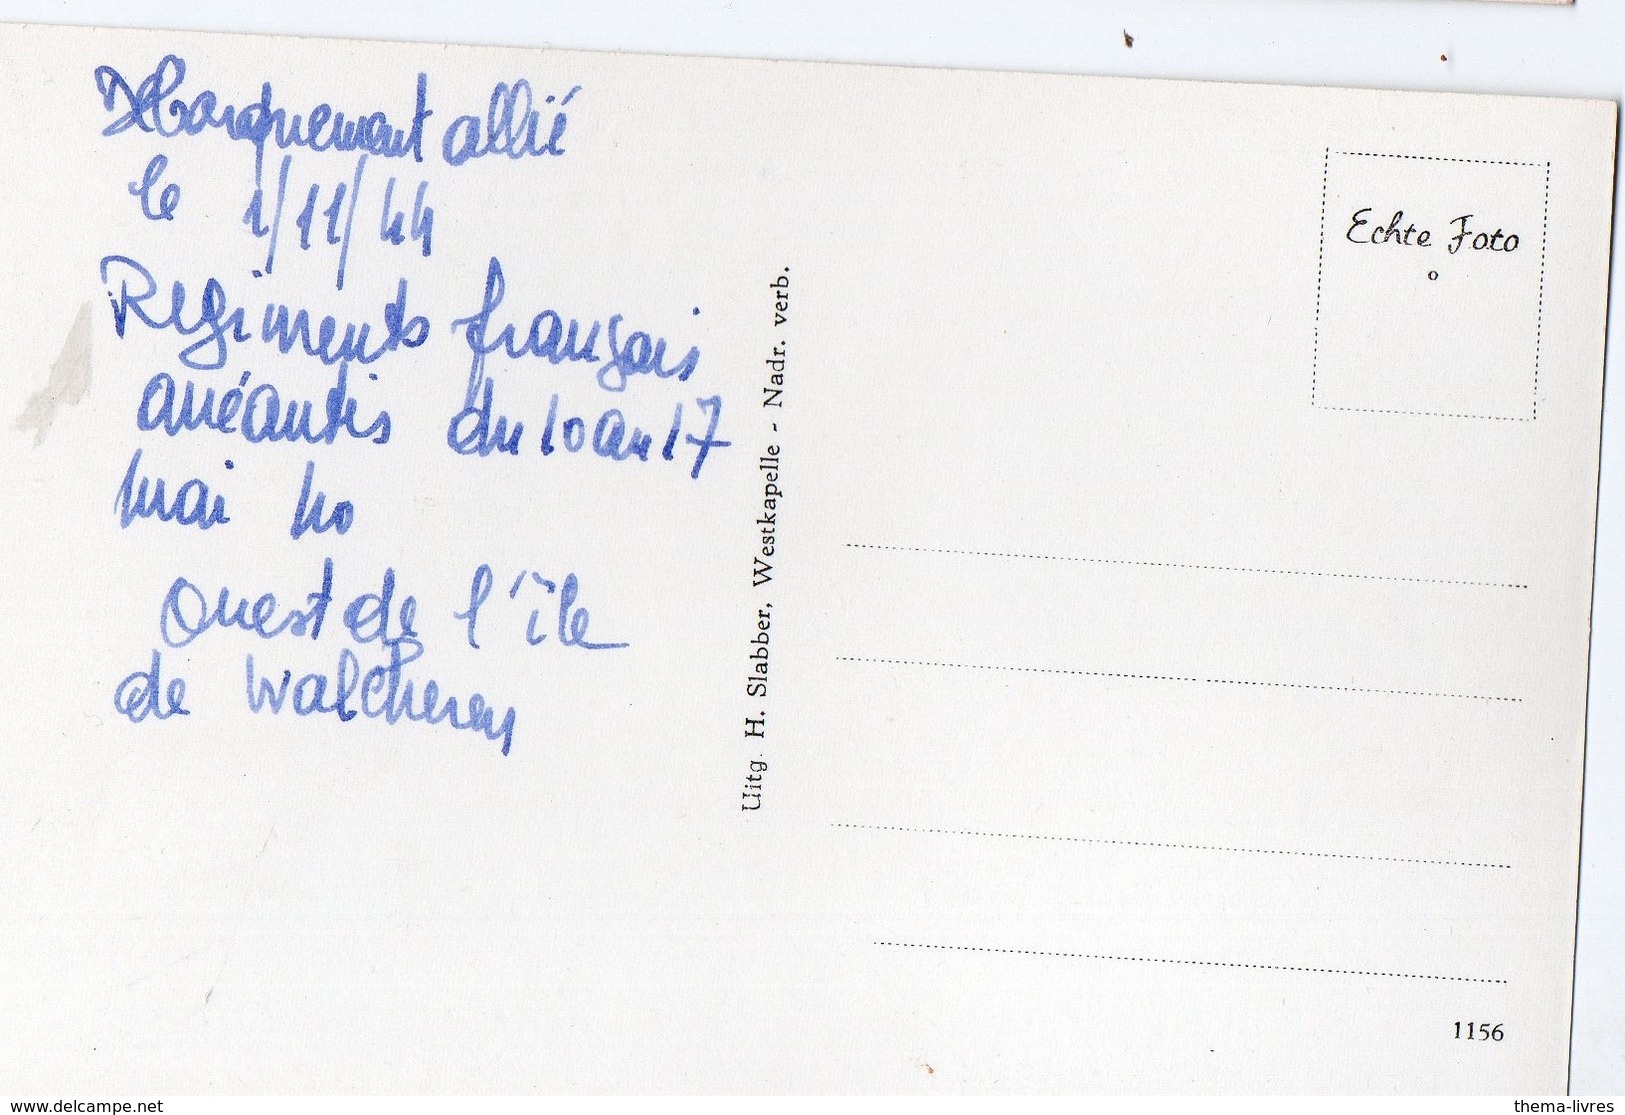 Débarquement allié
le 1/11/44
Regiments français
anéantis du 10 au 17
mai 40
Ouest de l'île
de Walcheren
Uitg. H. Slabber, Westkapelle - Nadr. verb.
Echte Foto
1156
www.delcampe.net
thema-livres